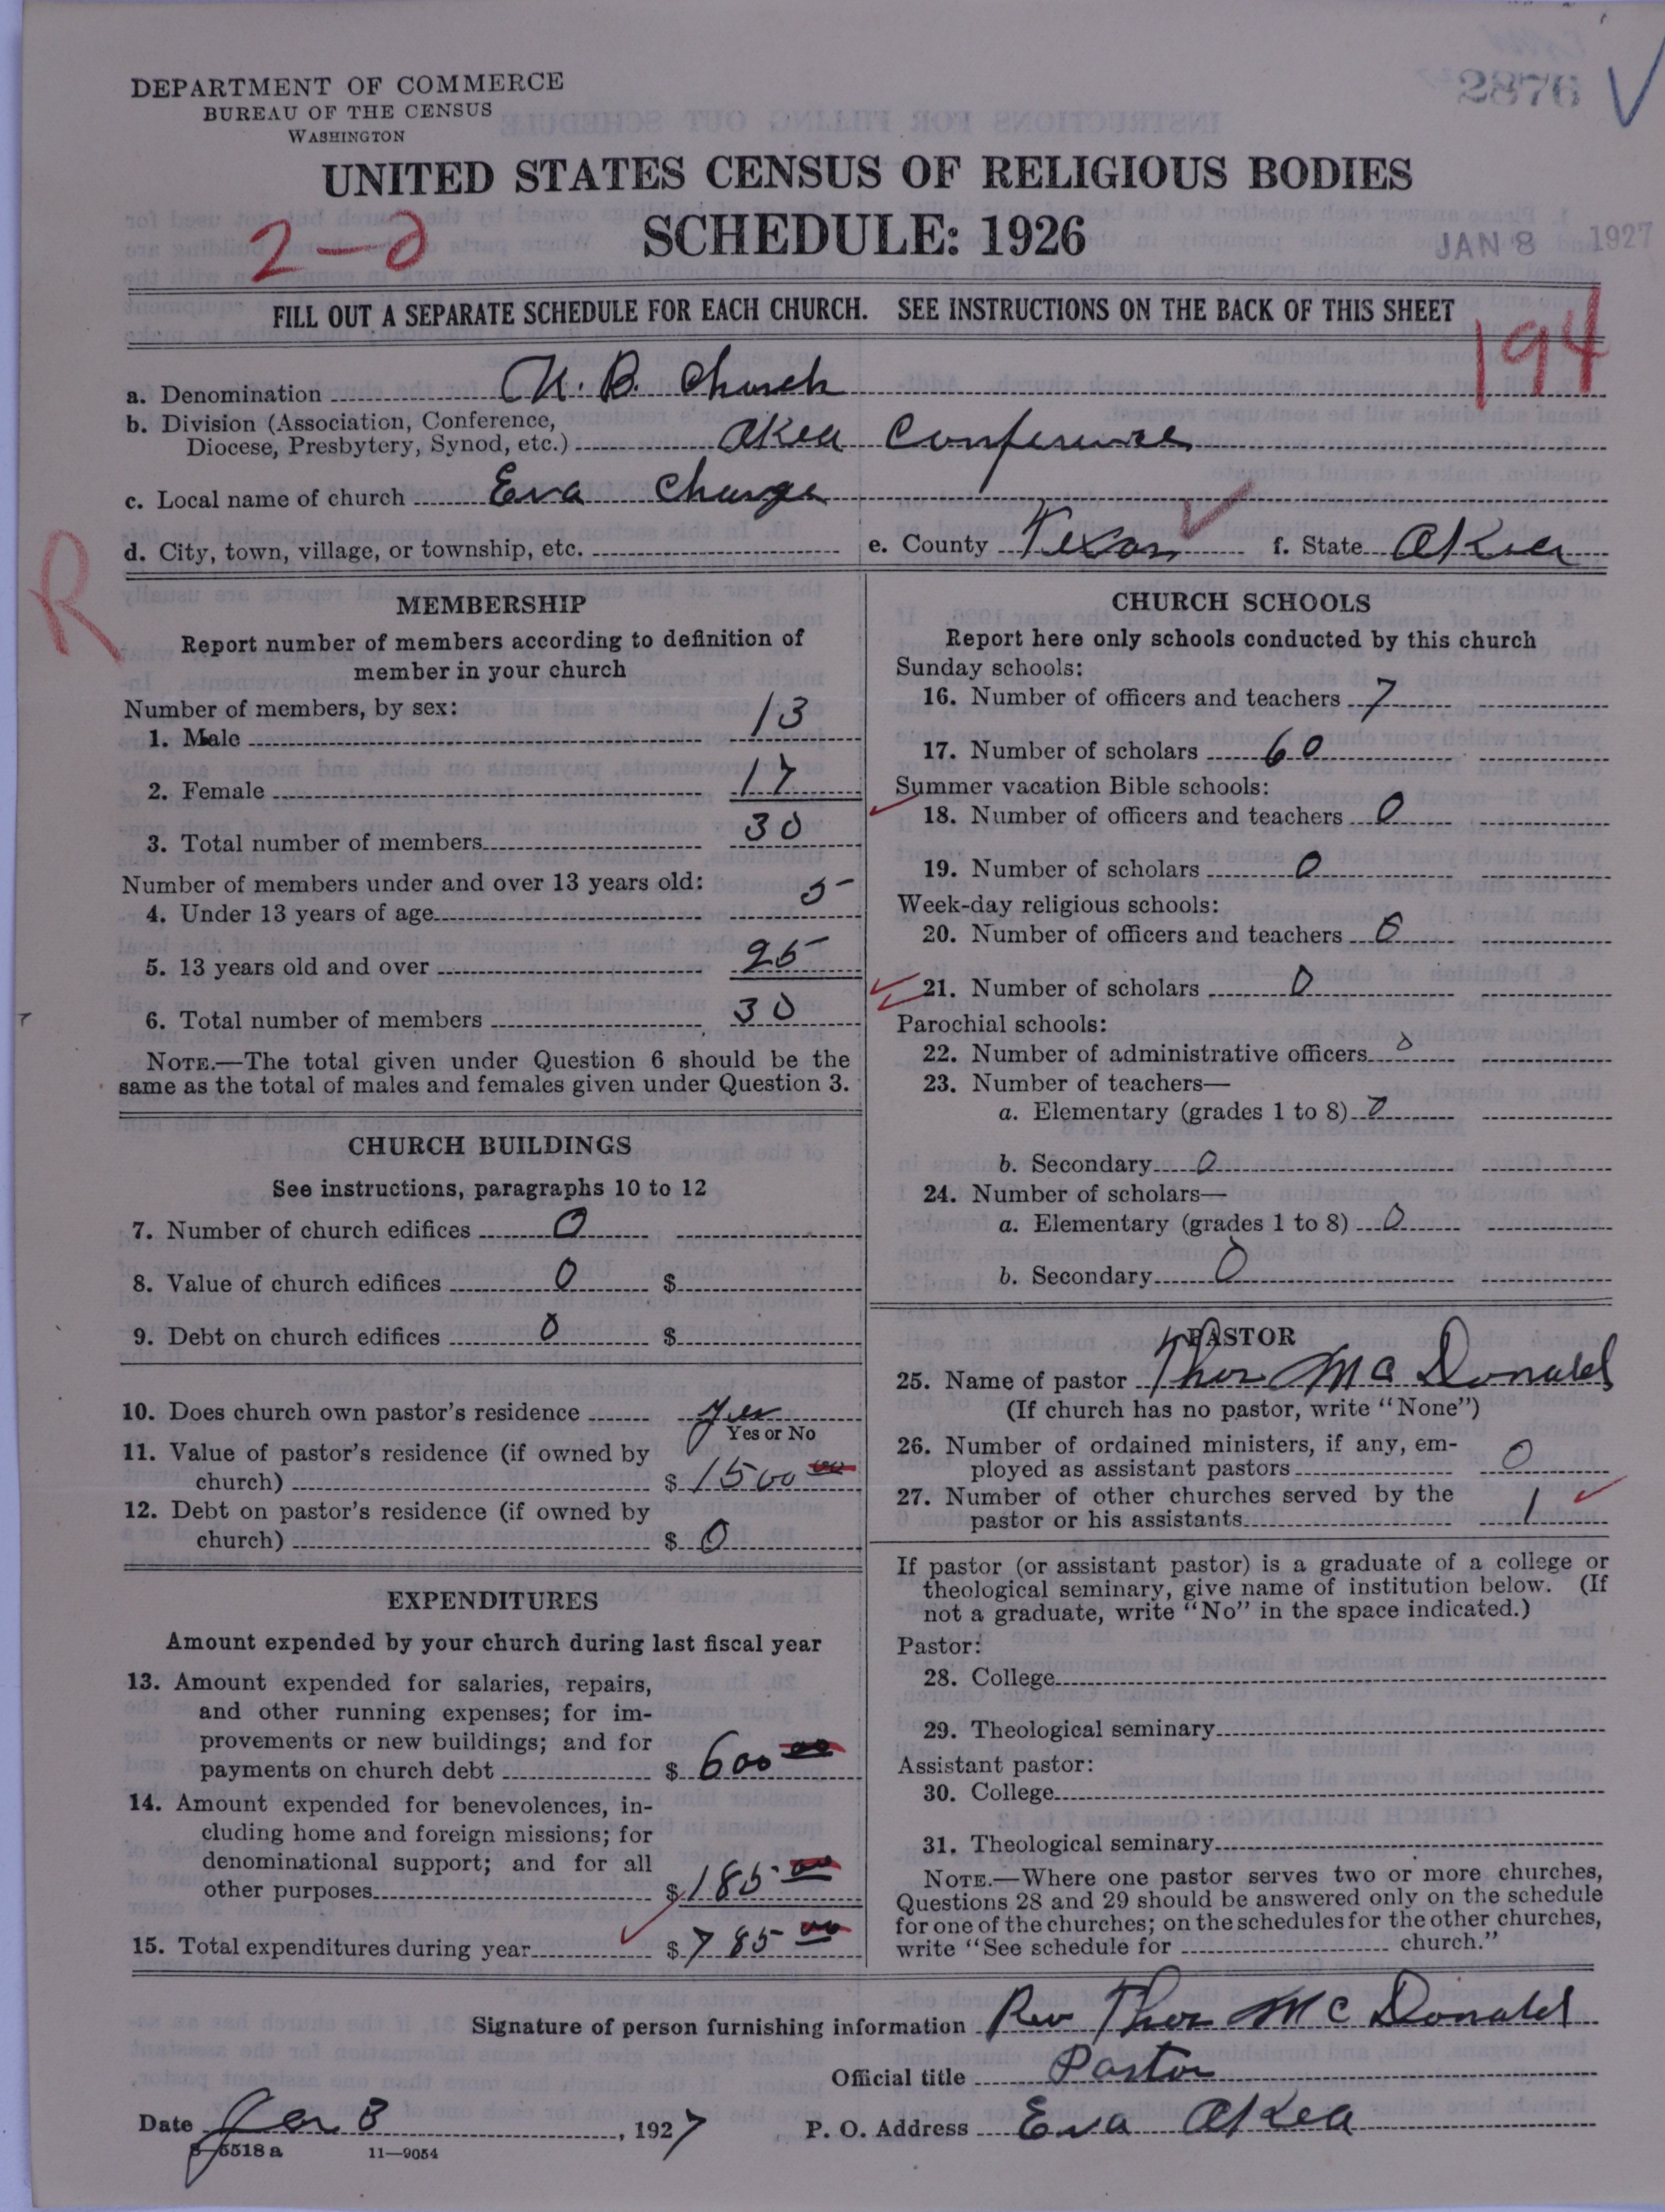 2876
DEPARTMENT OF COMMERCE
BUREAU OF THE CENSUS
WASHINGTON
UNITED STATES CENSUS OF RELIGIOUS BODIES
SCHEDULE: 1926
JAN 8 1927
FILL OUT A SEPARATE SCHEDULE FOR EACH CHURCH. SEE INSTRUCTIONS ON THE BACK OF THIS SHEET
194
a. Denomination U. B. Church
b. Division (Association, Conference,
Diocese, Presbytery, Synod, etc.) Okla Conference
c. Local name of church Eva Charge
d. City, town, village, or township, etc. e. County Texas f. State Okla
R
MEMBERSHIP
Report number of members according to definition of
member in your church
Number of members, by sex:
1. Male 13
2. Female 17
3. Total number of members 30
Number of members under and over 13 years old:
4. Under 13 years of age 5
5. 13 years old and over 25
6. Total number of members 30
NOTE.—The total given under Question 6 should be the
same as the total of males and females given under Question 3.
CHURCH BUILDINGS
See instructions, paragraphs 10 to 12
7. Number of church edifices 0
8. Value of church edifices 0 $
9. Debt on church edifices 0 $
10. Does church own pastor's residence yes
Yes or No
11. Value of pastor's residence (if owned by
church) $ 1500 00
12. Debt on pastor's residence (if owned by
church) $ 0
EXPENDITURES
Amount expended by your church during last fiscal year
13. Amount expended for salaries, repairs,
and other running expenses; for im-
provements or new buildings; and for
payments on church debt $ 600 00
14. Amount expended for benevolences, in-
cluding home and foreign missions; for
denominational support; and for all
other purposes $ 185 00
15. Total expenditures during year $ 785 00
CHURCH SCHOOLS
Report here only schools conducted by this church
Sunday schools:
16. Number of officers and teachers 7
17. Number of scholars 60
Summer vacation Bible schools:
18. Number of officers and teachers 0
19. Number of scholars 0
Week-day religious schools:
20. Number of officers and teachers 0
21. Number of scholars 0
Parochial schools:
22. Number of administrative officers 0
23. Number of teachers—
a. Elementary (grades 1 to 8) 0
b. Secondary 0
24. Number of scholars—
a. Elementary (grades 1 to 8) 0
b. Secondary 0
PASTOR
25. Name of pastor Thos McDonald
(If church has no pastor, write "None")
26. Number of ordained ministers, if any, em-
ployed as assistant pastors 0
27. Number of other churches served by the
pastor or his assistants 1
If pastor (or assistant pastor) is a graduate of a college or
theological seminary, give name of institution below. (If
not a graduate, write "No" in the space indicated.)
Pastor:
28. College
29. Theological seminary
Assistant pastor:
30. College
31. Theological seminary
NOTE.—Where one pastor serves two or more churches,
Questions 28 and 29 should be answered only on the schedule
for one of the churches; on the schedules for the other churches,
write "See schedule for church."
Signature of person furnishing information Rev Thos McDonald
Official title Pastor
Date Jan 3, 1927 P. O. Address Eva Okla
8—5518 a 11—9054